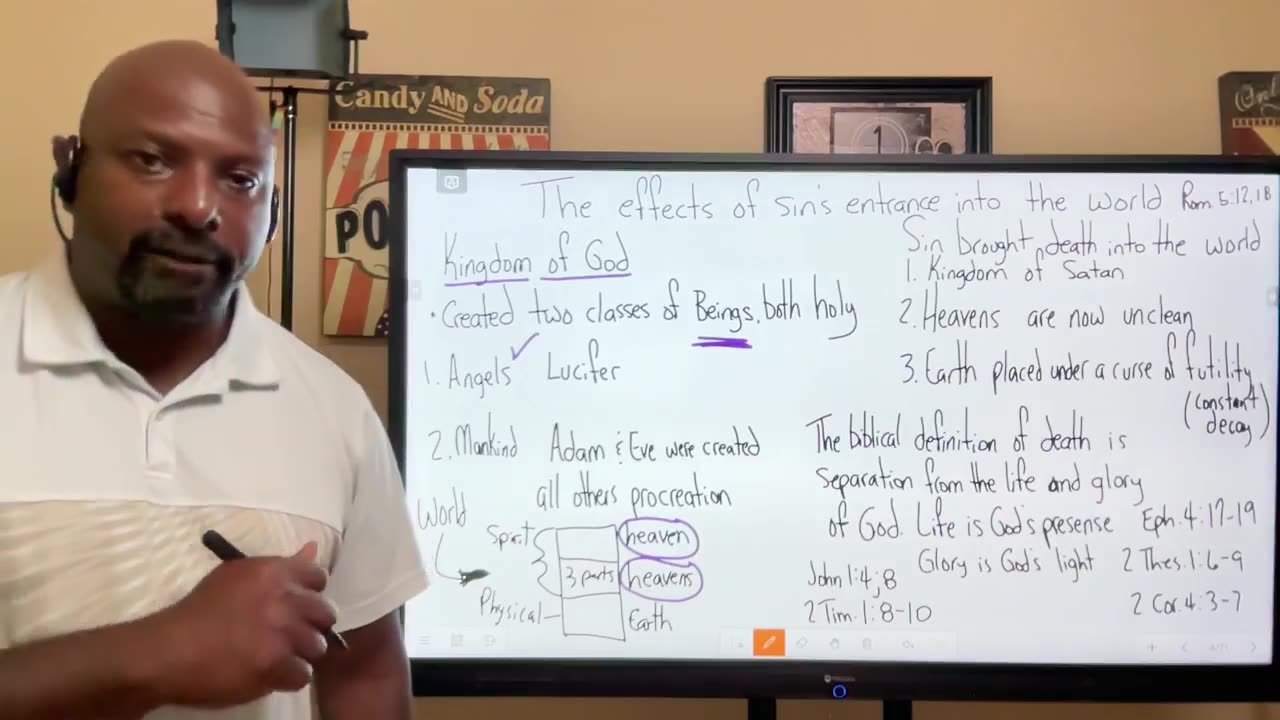 Candy AND Soda
PO
1
The effects of sin's entrance into the world Rom. 5:12,18
Kingdom of God
· Created two classes of Beings, both holy
1. Angels Lucifer
2. Mankind Adam & Eve were created
all others procreation
World
Spirit
heaven
3 parts
heavens
Physical
Earth
Sin brought death into the world
1. Kingdom of Satan
2. Heavens are now unclean
3. Earth placed under a curse of futility
(constant decay)
The biblical definition of death is
separation from the life and glory
of God. Life is God's presense Eph. 4:17-19
Glory is God's light 2 Thes. 1:6-9
John 1:4;8
2 Tim. 1:8-10
2 Cor. 4:3-7